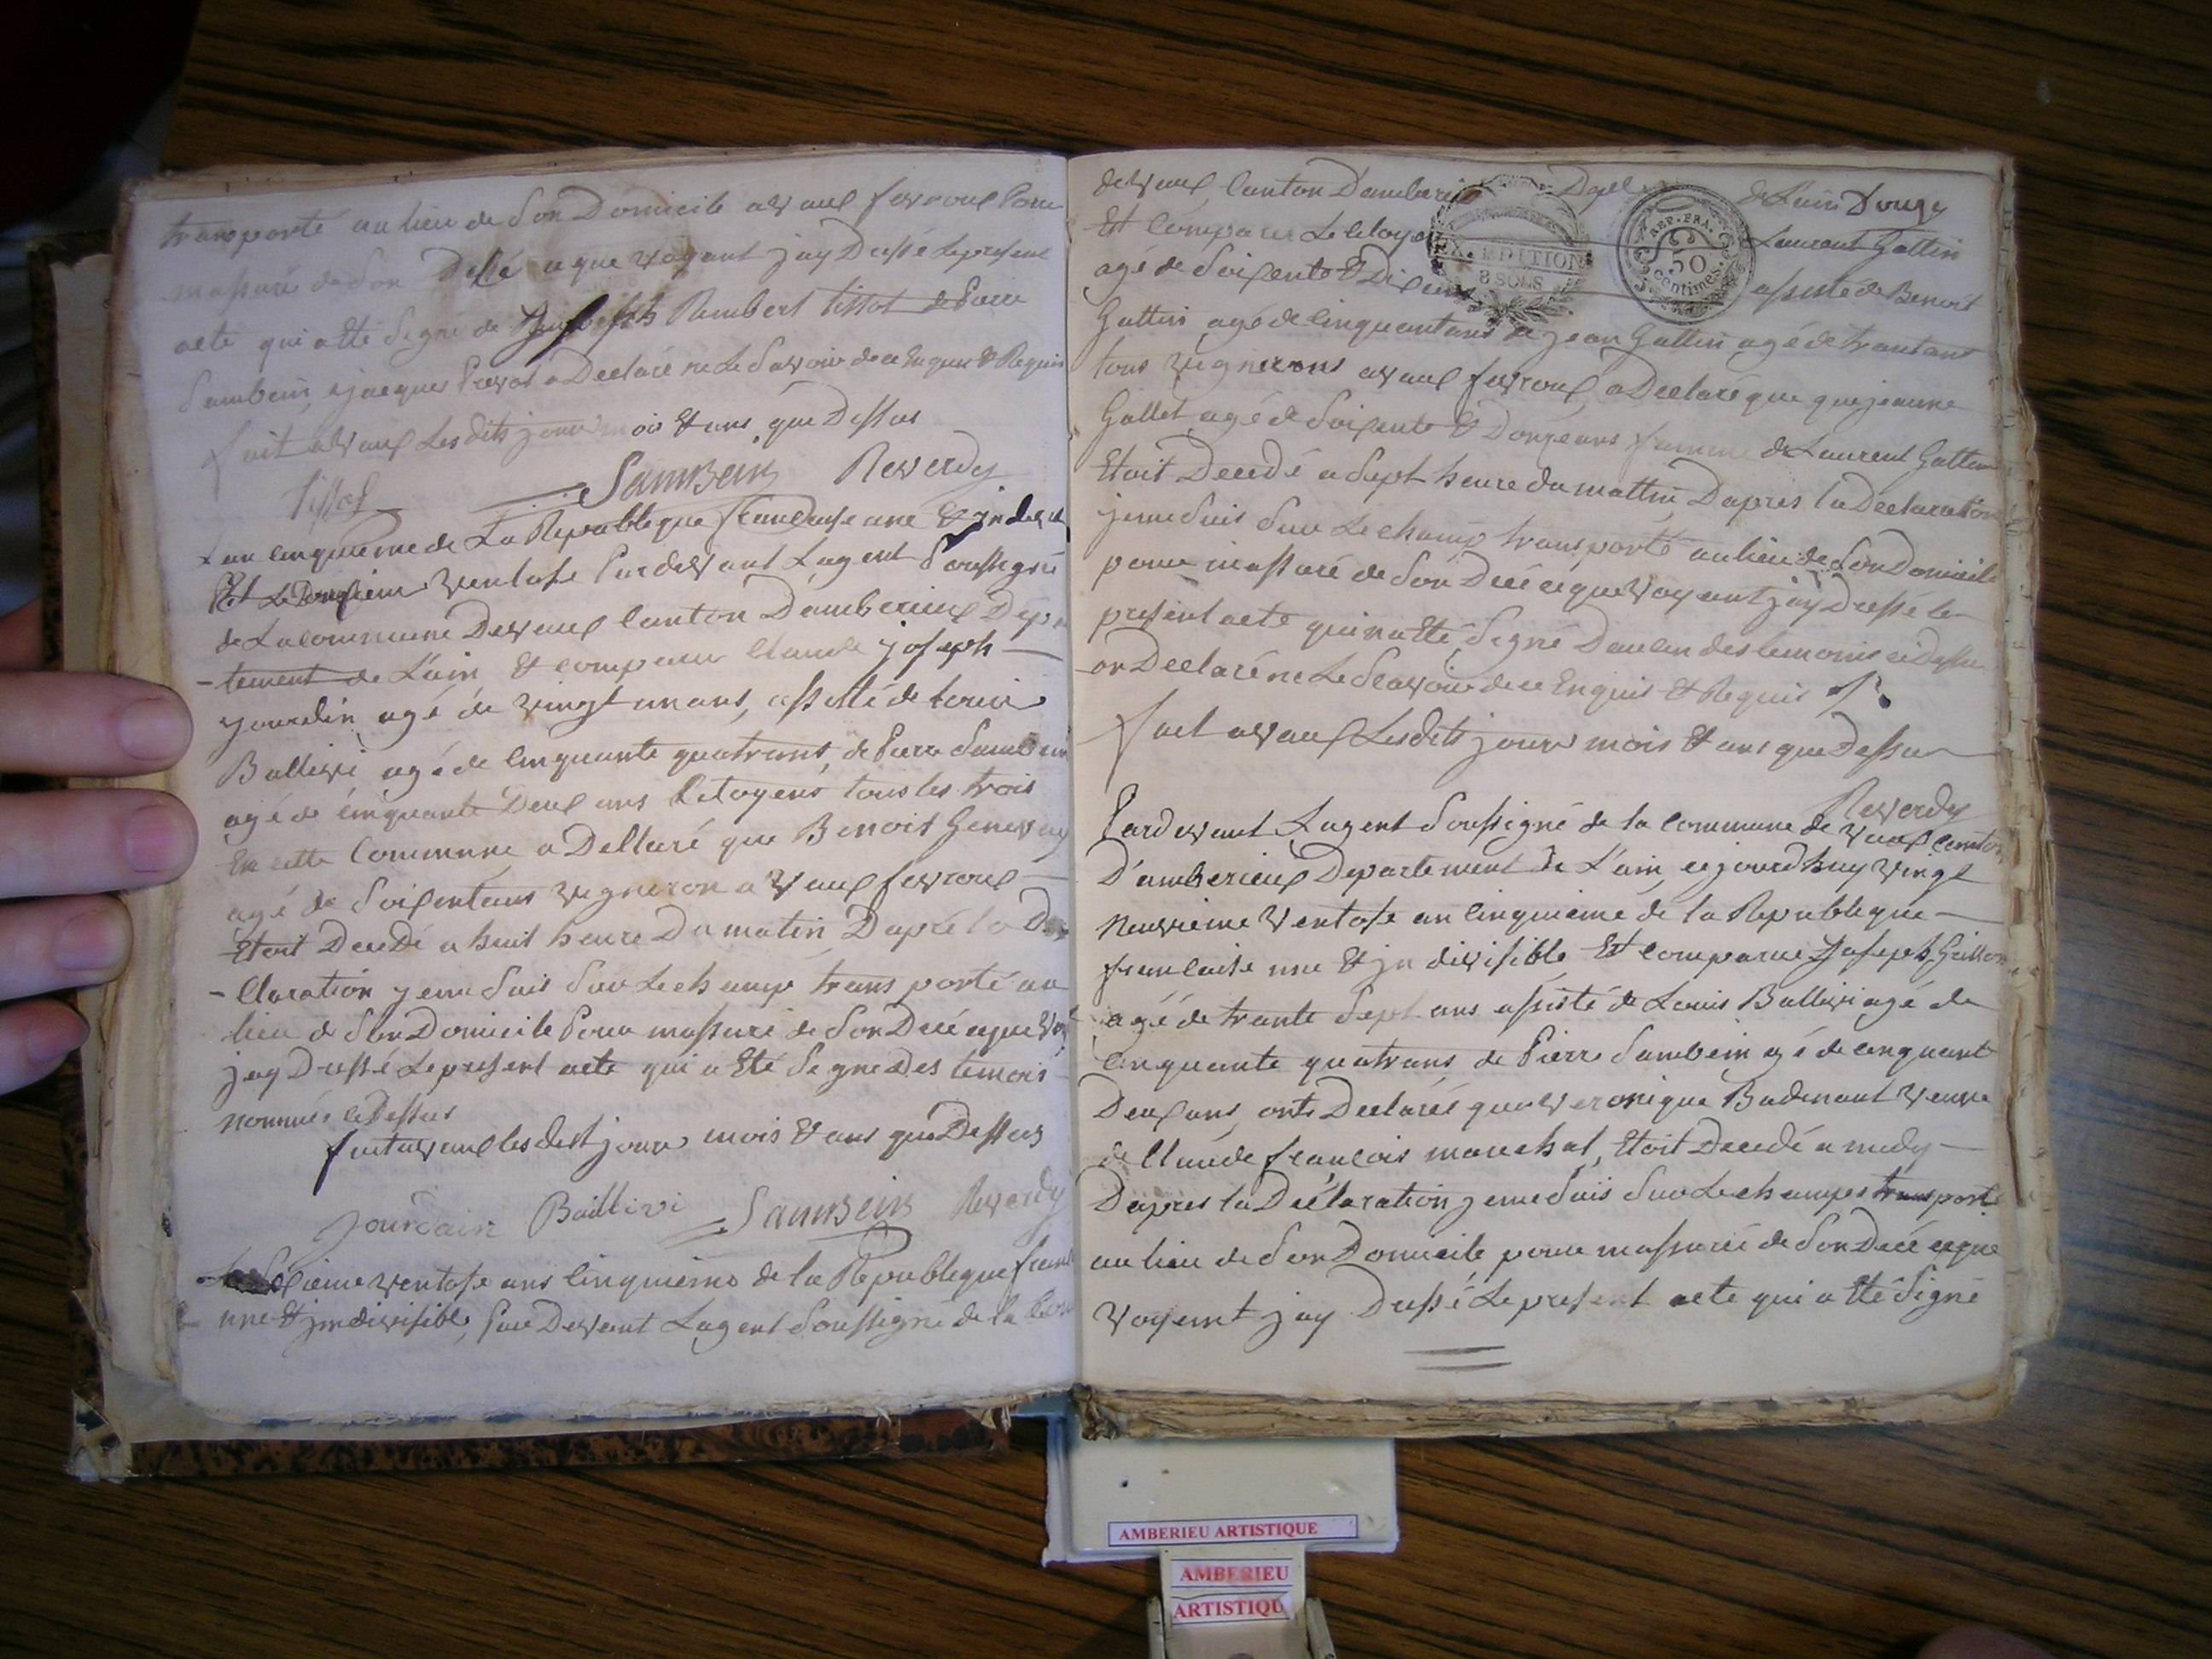 transporté au lieu de Son Domicile a Vaux fevroux Pour
massuré de Son Décé a que voyant jay Dressé Le present
acte qui a Eté Signé de Rambert tissot de Piere
Sambein, ejacques Prevot a Declaré ne Le Savoir de ce Enquis & Requis
fait a Vaux Les dits jour mois & ans que Dessus
Tissot Sambein Reverdy
Lan Cinquieme de La Republeque francaise une & indi
Et Le ventose Pardevant Lagent Soussigné
de La commune Devaux Canton Damberieux Dépa
-tement de L'ain Et comparu Claude joseph
jourdin agé de vingt un ans, assisté de Louis
Ballivi agé de Cinquante quatre ans, de Piere Sambein
agé de cinquante Deux ans Citoyens tous les trois
En cette Commune a Dellaré que Benoit Genevay
agé de Soixentans vigneron a Vaux fevroux
Etoit Decedé a huit heure Du matin D'apré la De
-claration jeme Suis Sur Le champ trans porté au
lieu de Son Domicile Pour massuré de Son Décé eque
jay Dressé Le present acte qui a Eté Signe Des temoin
nommés ci Dessus
fait a Vaux les dest jour mois & ans que Dessus
Jourdain Baillivi Sambein Reverdy
ventose ans Cinquieme de la Republeque franc
une & jndivisible, Par Devant Lagent Soussigné de la Com
de Vaux, Canton Damberi Dept de Lain Dougy
Et Comparu Le Citoyen Laurant Gattin
agé de Soixente & Dix ans assisté de Benoit
EXPEDITION
8 SOLS
REP. FRA.
50
centimes.
Gattin agé de Cinquantans de jean Gattin agé de trantans
tous vignerons a Vaux fevroux, a Declaré que que jeanne
Gallet agé de Soixente & Donzeans famme de Laurent Gattin
Etoit Decedé a Sept heure du mattin, Dapres la Déclaration
jeme Suis Sur Le champ transporté au lieu de Son Domicile
pour massuré de Son Décé eque Voyent jay Dressé Le
present acte qui na Eté Signé Daucun des temoins ci Dessu
on Declaré ne Le Scavoir de ce Enquis & Requis
fait a Vaux Les dits jour mois & ans que Dessus
Reverdy
Pardevant Lagent Soussigné de la Commune de Vaux Canton
D'amberieux Departement de L'ain, cejourdhuy vingt
neuvieme Ventose an Cinquieme de la Republeque
francaise une & jn divisible Et comparue Joseph
agé de trante Sept ans assisté de Louis Ballivi agé de
Cinquante quatrans de Pierre Sambein agé de cinquant
Deux ans, onts Declarés que veronique Badenant veuve
de Claude francois marechal, Etoit Decedé a midy
Dapres la Declaration jeme Suis Sur Le champs transporté
au lieu de Son Domicile pour massurer de Son Décé eque
Voyent jay Dressé Le present acte qui a Eté Signé
AMBERIEU ARTISTIQUE
AMBERIEU
ARTISTIQU